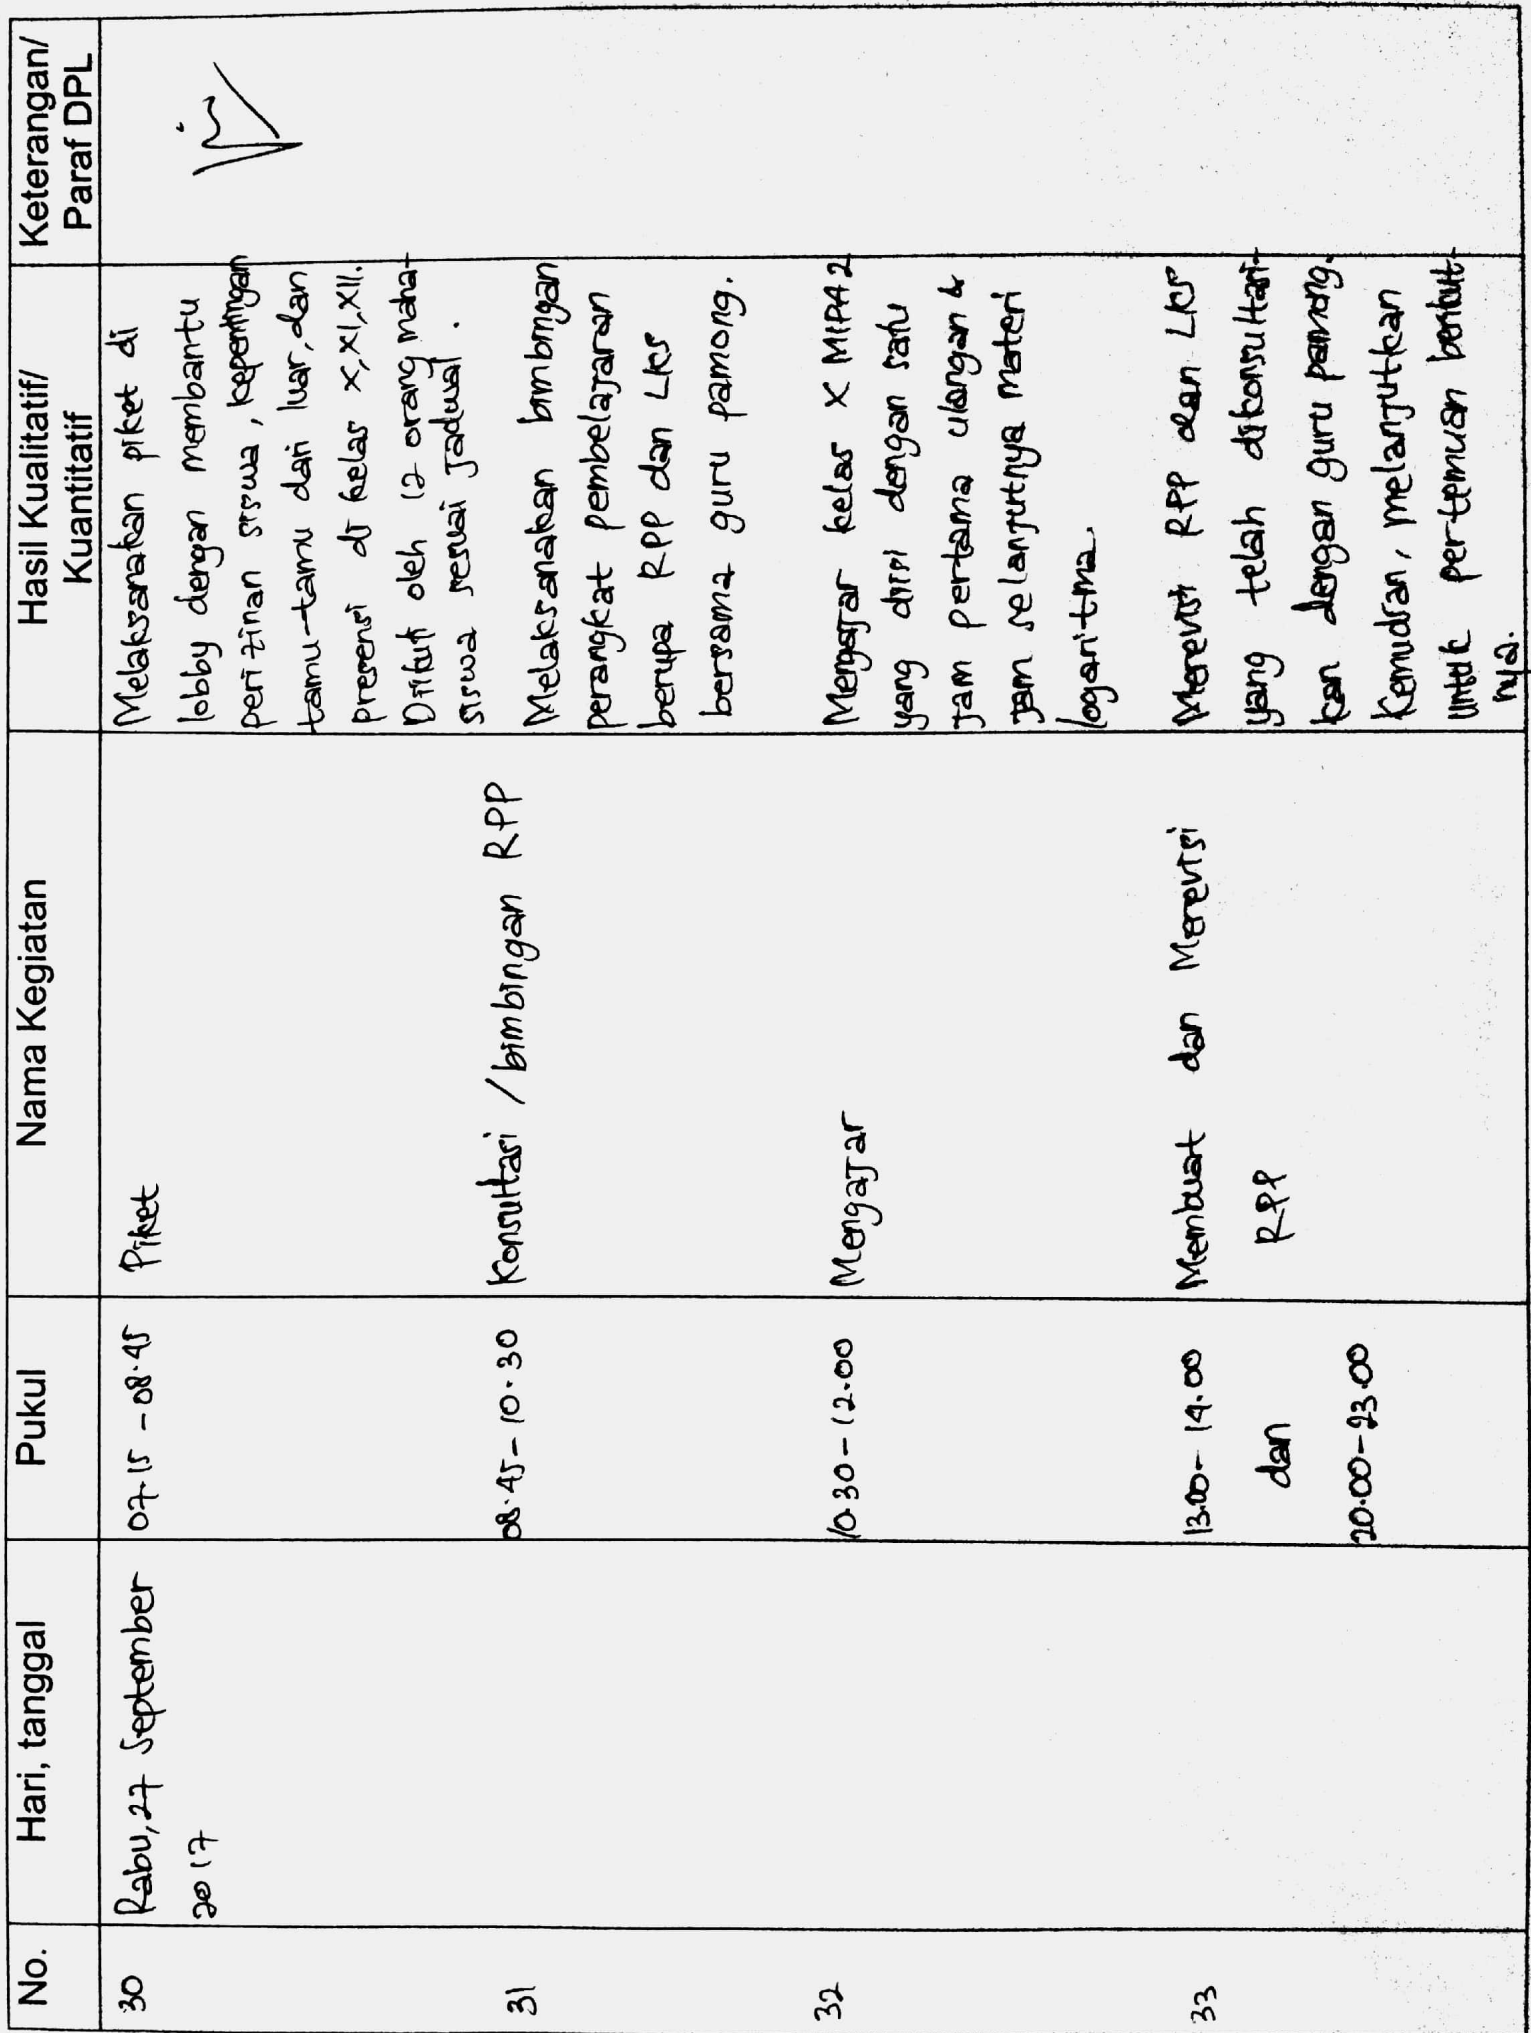 No. Hari, tanggal Pukul Nama Kegiatan Hasil Kualitatif/ Kuantitatif Keterangan/ Paraf DPL
30 Rabu, 27 September 2017 07.15 - 08.45 Piket
Melaksanakan piket di
lobby dengan membantu
perizinan siswa, kepentingan
tamu-tamu dari luar, dan
presensi di kelas X, XI, XII.
Diikuti oleh 12 orang maha-
siswa sesuai jadwal.
31 08.45 - 10.30 Konsultasi / bimbingan RPP
Melaksanakan bimbingan
perangkat pembelajaran
berupa RPP dan LKS
bersama guru pamong.
32 10.30 - 12.00 Mengajar
Mengajar kelas X MIPA 2
yang diisi dengan satu
jam pertama ulangan &
jam selanjutnya materi
logaritma.
33 13.00 - 14.00 dan 20.00 - 23.00 Membuat dan Merevisi RPP
Merevisi RPP dan LKS
yang telah dikonsultasi-
kan dengan guru pamong.
Kemudian, melanjutkan
untuk pertemuan berikut-
nya.